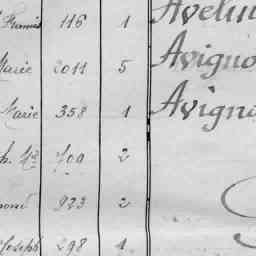 Francis 116 1 Avelin
Marie 2011 5 Avigno
Marie 358 1 Avigno
h. Md 700 2
mond 923 2
Joseph 298 1